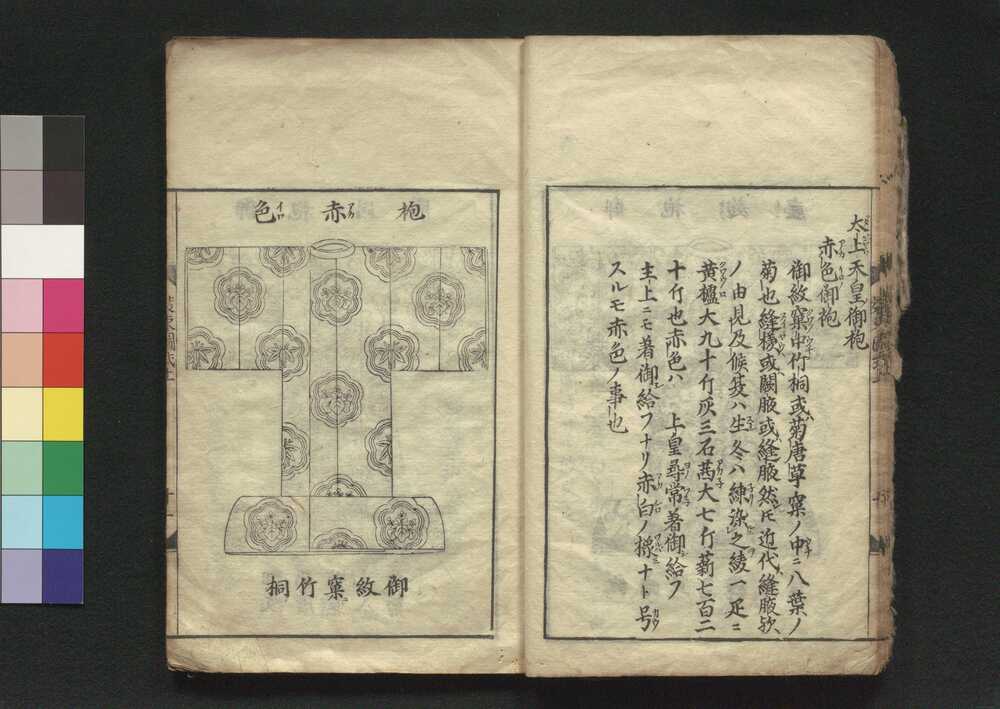 太上天皇御袍
赤色御袍
御紋窠中竹桐或菊唐草窠ノ中ニ八葉ノ
菊也縫様或闕腋或縫腋然ㇳモ近代縫腋欤、
ノ由見及候夏ハ生冬ハ練染之綾一疋ニ
黄櫨大九十斤灰三石茜大七斤薪七百二
十斤也赤色ハ 上皇尋常著御給フ
主上ニモ著御給フナリ赤白ノ橡ナト号
スルモ赤色ノ事也
袍赤色
御紋窠竹桐